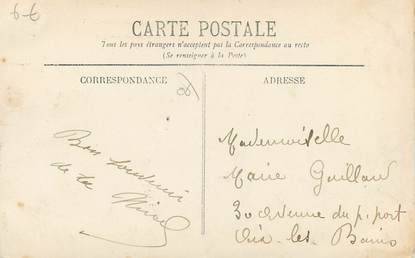 6-€
CARTE POSTALE
Tous les pays étrangers n'acceptent pas la Correspondance au recto
(Se renseigner à la Poste)
CORRESPONDANCE
Bon Souvenir
de ta
ADRESSE
Mademoiselle
Marie Guilland
30 Avenue du p. port
Aix-les-Bains